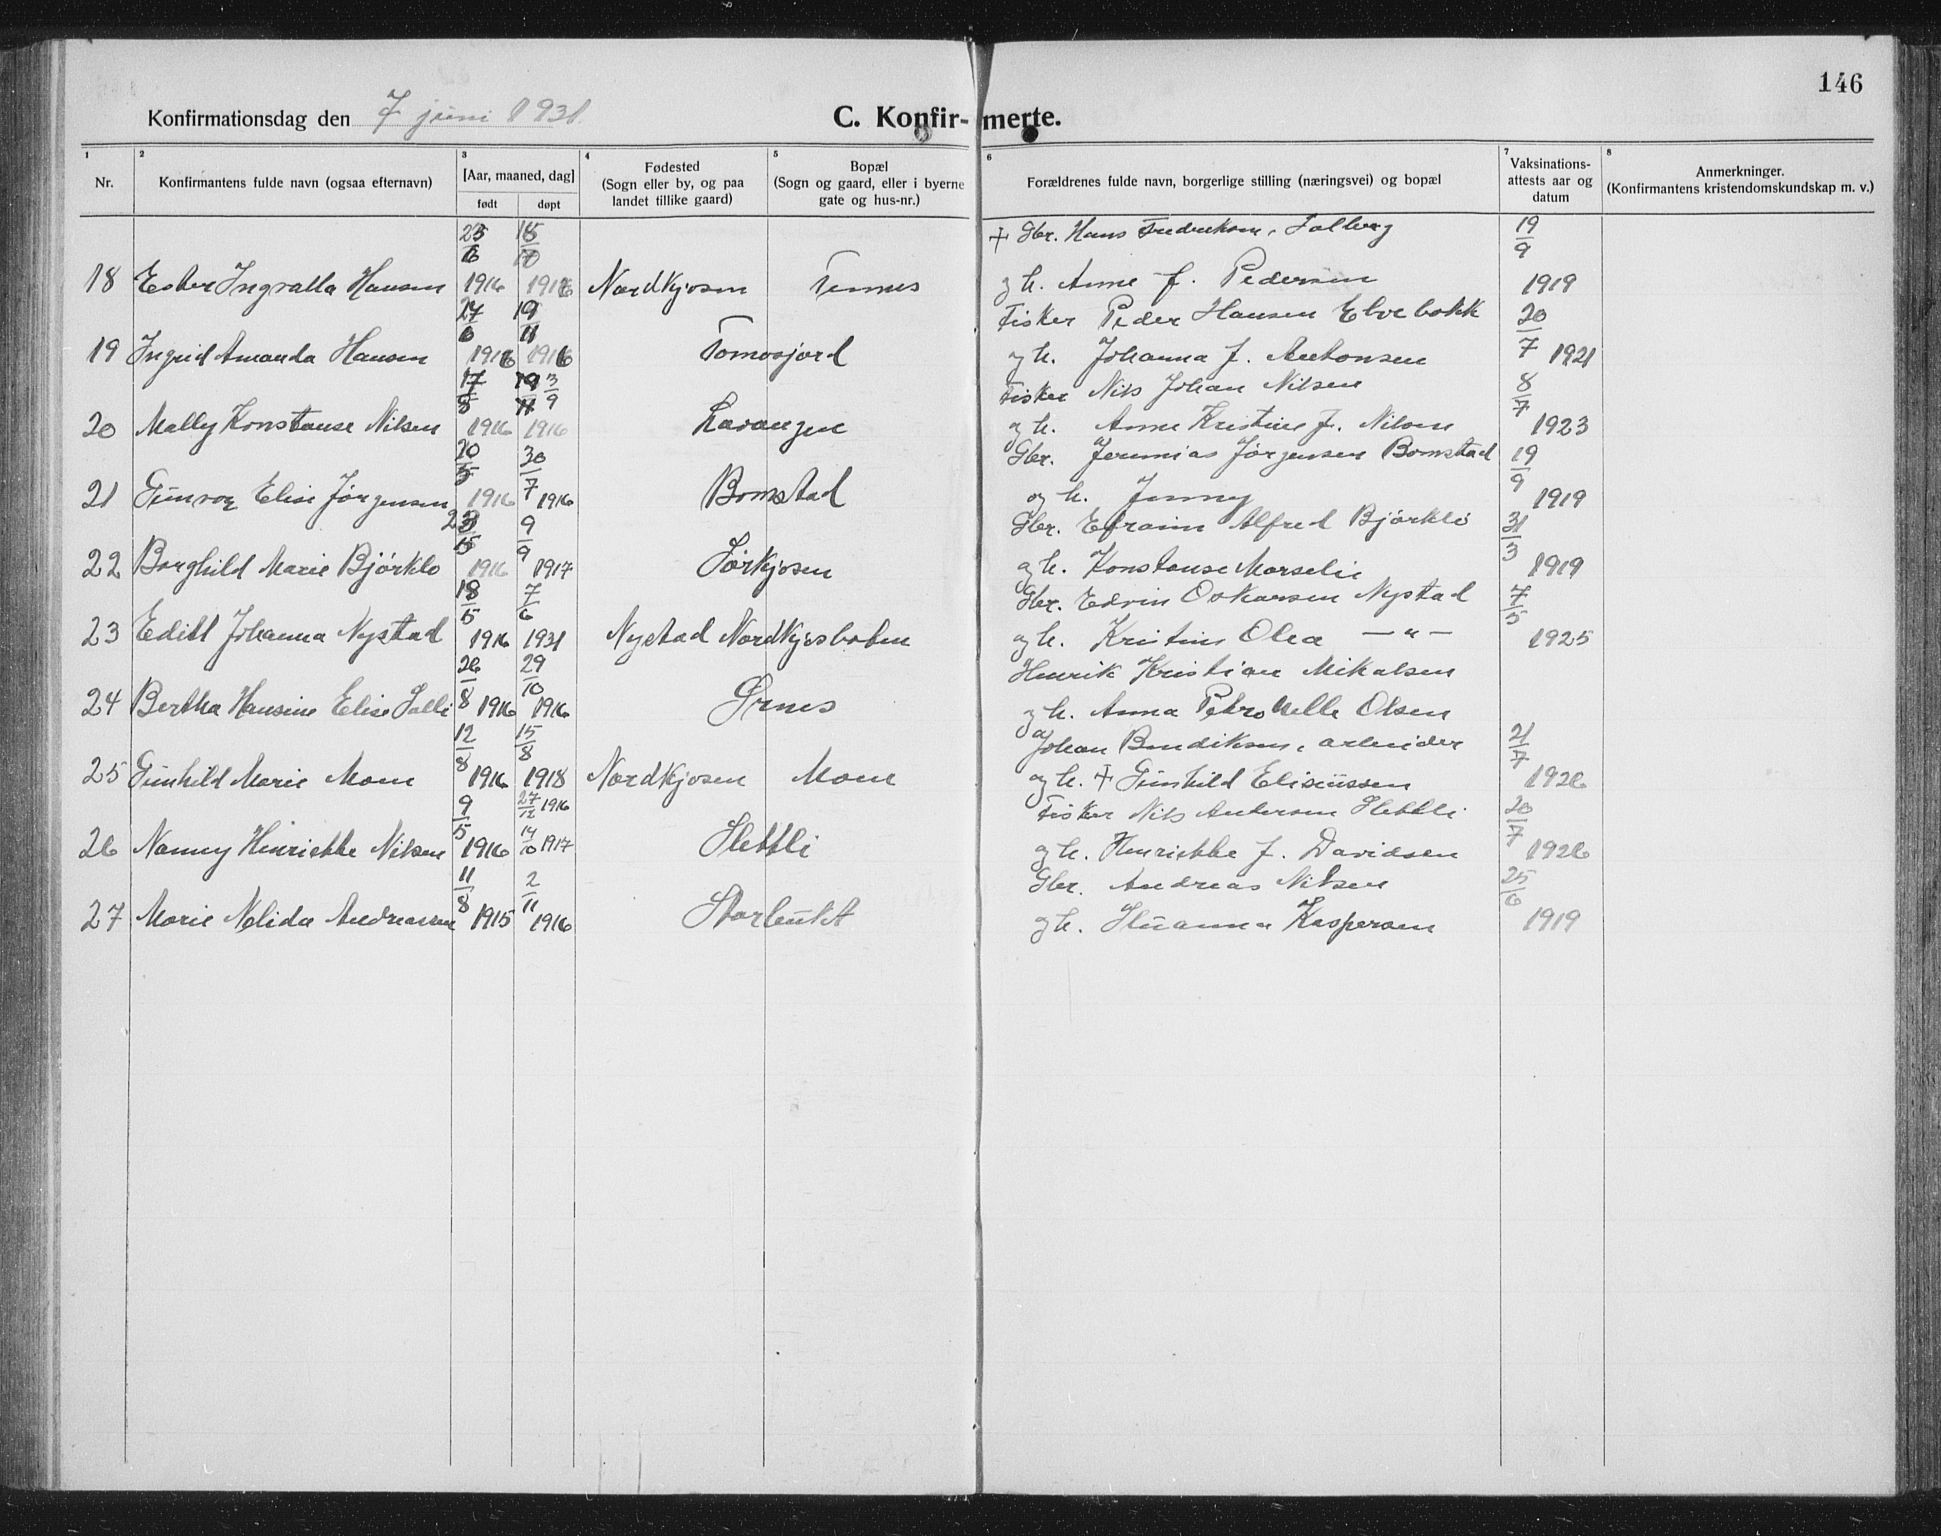 146
Konfirmationsdag den 7 juni 1931.
C. Konfirmerte.
1 2 3 4 5 6 7 8
Nr.
Konfirmantens fulde navn (ogsaa efternavn)
[Aar, maaned, dag]
født døpt
Fødested
(Sogn eller by, og paa
landet tillike gaard)
Bopæl
(Sogn og gaard, eller i byerne
gate og hus-nr.)
Forældrenes fulde navn, borgerlige stilling (næringsvei) og bopæl
Vaksinations-
attests aar og
datum
Anmerkninger.
(Konfirmantens kristendomskundskap m. v.)
+ Gbr. Hans Fredriksen, Solberg 19/9
18 Ester Ingralla Hansen 1916 1916 Nordkjosen Tennes og h. Anne f. Pedersen 1919
Fisker Peder Hansen Elvebakk 20/7
19 Ingrid Amanda Hansen 1916 1916 Tomasjord og h. Johanna f. Antonsen 1921
17/5 3/9 Fisker Nils Johan Nilsen 8/7
20 Mally Konstanse Nilsen 1916 1916 Lavangen og h. Anne Kristine f. Nilsen 1923
30/7 Gbr. Jeremias Jørgensen Bomstad 19/9
21 Gunvor Elise Jørgensen 1916 1916 Bomstad og h. Jenny 1919
9/9 Gbr. Efraim Alfred Bjørklo 31/3
22 Borghild Marie Bjørklo 1916 1917 Sørkjosen og h. Konstanse Marselie 1919
18/5 7/6 Gbr. Edvin Oskarsen Nystad 7/5
23 Edith Johanna Nystad 1916 1931 Nystad Nordkjosbotn og h. Kristine Olea — „ — 1925
26/8 29/10 Henrik Kristian Mikalsen
24 Bertha Hansine Elise Salli 1916 1916 Ørnes og h. Anna Petronelle Olsen
12/8 15/8 Johan Bendiksen, arbeider 21/7
25 Gunhild Marie Moen 1916 1918 Nordkjosen Moen og h. + Gunhild Eliseussen 1926
9/5 27/12 1916 Fisker Nils Andersen Slettli 20/7
26 Nanny Henrikke Nilsen 1916 14/10 1917 Slettli og h. Henrikke f. Davidsen 1926
11/8 2/11 Gbr. Andreas Nilsen 25/6
27 Marie Nelida Andreassen 1915 1916 Storbukt og h. Susanna Kaspersen 1919